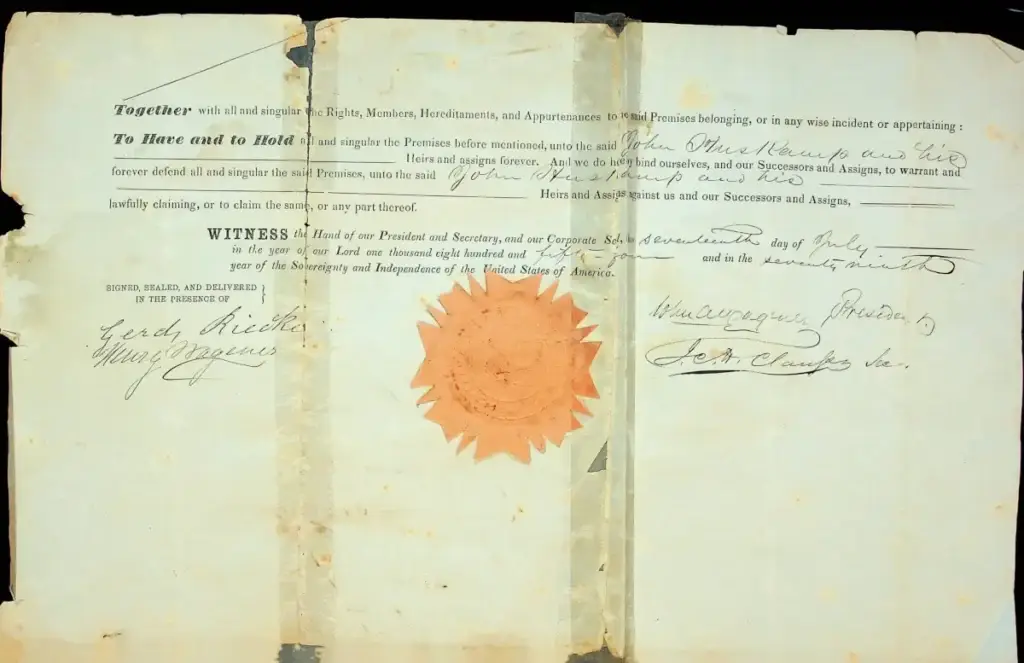 Together with all and singular the Rights, Members, Hereditaments, and Appurtenances to said Premises belonging, or in any wise incident or appertaining :
To Have and to Hold all and singular the Premises before mentioned, unto the said John Huskamp and his
Heirs and assigns forever. And we do bind ourselves, and our Successors and Assigns, to warrant and
forever defend all and singular the said Premises, unto the said John Huskamp and his
Heirs and Assigns against us and our Successors and Assigns,
lawfully claiming, or to claim the same, or any part thereof.
WITNESS the Hand of our President and Secretary, and our Corporate seventeenth day of July
in the year of our Lord one thousand eight hundred and fifty-four and in the seventy ninth
year of the Sovereignty and Independence of the United States of America.
SIGNED, SEALED, AND DELIVERED }
IN THE PRESENCE OF
Gerd Riecke
Henry Wagener
President